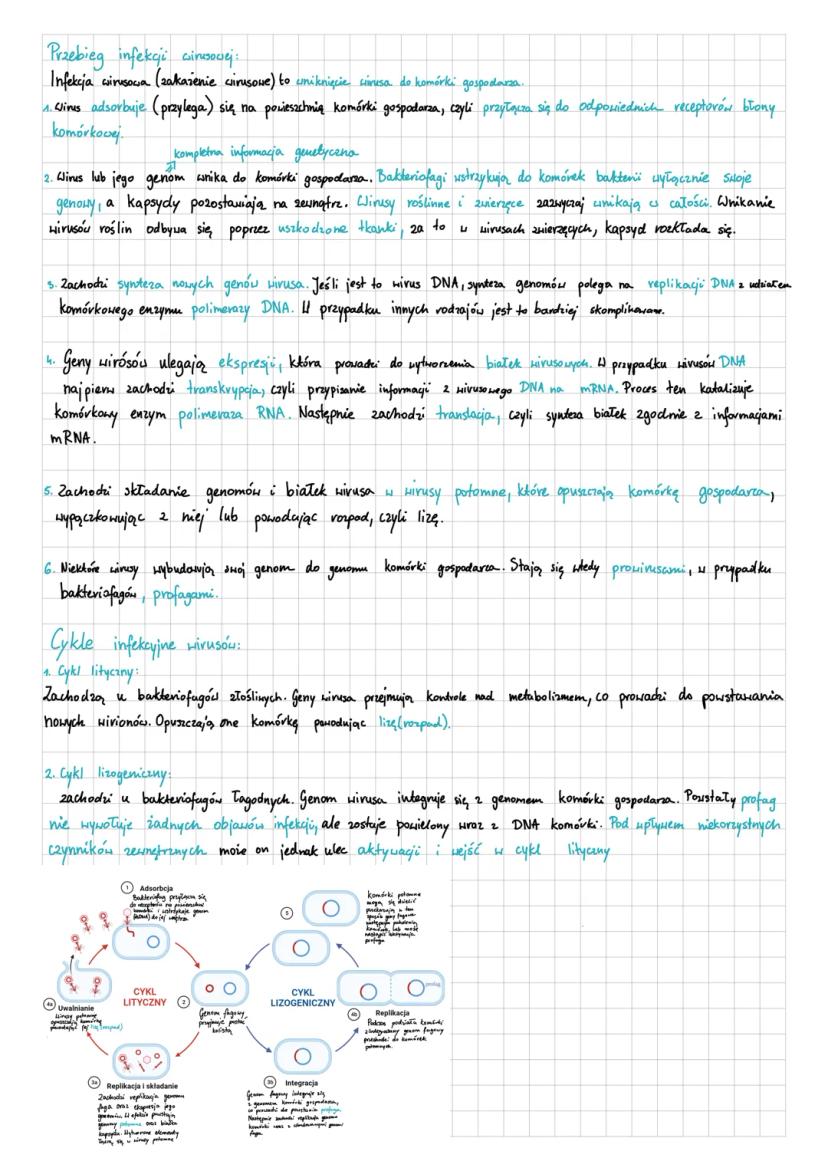 Przebieg infekcji wirusowej:
Infekcja wirusowa (zakażenie wirusowe) to wniknięcie wirusa do komórki gospodarza.
1. Wirus adsorbuje (przylega) się na powieszchnię komórki gospodarza, czyli przyłącza się do odpowiednich receptorów błony
komórkowej.
kompletna informacja genetyczna
2. Wirus lub jego genom wnika do komórki gospodarza. Bakteriofagi wstrzykują do komórek bakterii wyłącznie swoje
genomy, a kapsydy pozostawiają na zewnątrz. Wirusy roślinne i zwierzęce zazwyczaj wnikają w całości. Wnikanie
wirusów roślin odbywa się poprzez uszkodzone tkanki, za to w wirusach zwierzęcych, kapsyd rozkłada się.
3. Zachodzi synteza nowych genów wirusa. Jeśli jest to wirus DNA, synteza genomów polega na replikacji DNA z udziałem
komórkowego enzymu polimerazy DNA. W przypadku innych rodzajów jest to bardziej skomplikowane.
4. Geny wirósów ulegają ekspresji, która prowadzi do wytworzenia białek wirusowych. W przypadku wirusów DNA
najpierw zachodzi transkrypcja, czyli przypisanie informacji z wirusowego DNA na mRNA. Proces ten katalizuje
komórkowy enzym polimeraza RNA. Następnie zachodzi translacja, czyli synteza białek zgodnie z informacjami
mRNA.
5. Zachodzi składanie genomów i białek wirusa w wirusy potomne, które opuszczają komórkę gospodarza,
wypączkowując z niej lub powodując rozpad, czyli lizę.
6. Niektóre wirusy wybudowują swój genom do genomu komórki gospodarza. Stają się wtedy prowirusami, w przypadku
bakteriofagów, profagami.
Cykle infekcyjne wirusów:
1. Cykl lityczny:
Zachodzą u bakteriofagów złośliwych. Geny wirusa przejmują kontrole nad metabolizmem, co prowadzi do powstawania
nowych wirionów. Opuszczają one komórkę powodując lizę (rozpad).
2. Cykl lizogeniczny:
zachodzi u bakteriofagów łagodnych. Genom wirusa integruje się z genomem komórki gospodarza. Powstały profag
nie wywołuje żadnych objawów infekcji, ale zostaje powielony wraz z DNA komórki. Pod wpływem niekorzystnych
czynników zewnętrznych może on jednak ulec aktywacji i wejść w cykl lityczny
1 Adsorbcja
Bakteriofag przyłącza się
do receptorów na powierzchni
komórki i wstrzykuje genom
(DNA) do jej wnętrza
CYKL
LITYCZNY
2
Genom fagowy
przyjmuje postać
kolistą
3a
Replikacja i składanie
Zachodzi replikacja genomu
faga oraz ekspresja jego
genomu. W efekcie powstają
genomy potomne oraz białka
kapsydu. Wytworzone elementy
łączą się w wirusy potomne
4a
Uwalnianie
Wirusy potomne
opuszczają komórkę
powodując jej lizę (rozpad)
CYKL
LIZOGENICZNY
3b
Integracja
Genom fagowy integruje się
z genomem komórki gospodarza,
co prowadzi do powstania profaga.
Następnie zachodzi replikacja genomu
komórki wraz z genomem
faga.
4b
Replikacja
Podczas podziału komórki
zintegrowany genom fagowy
przechodzi do komórek
potomnych.
profag
5
komórki potomne
mogą się dzielić
przekazując w ten
sposób geny fagowe
następnym pokoleniom
komórek, lub może
nastąpić aktywacja
profaga